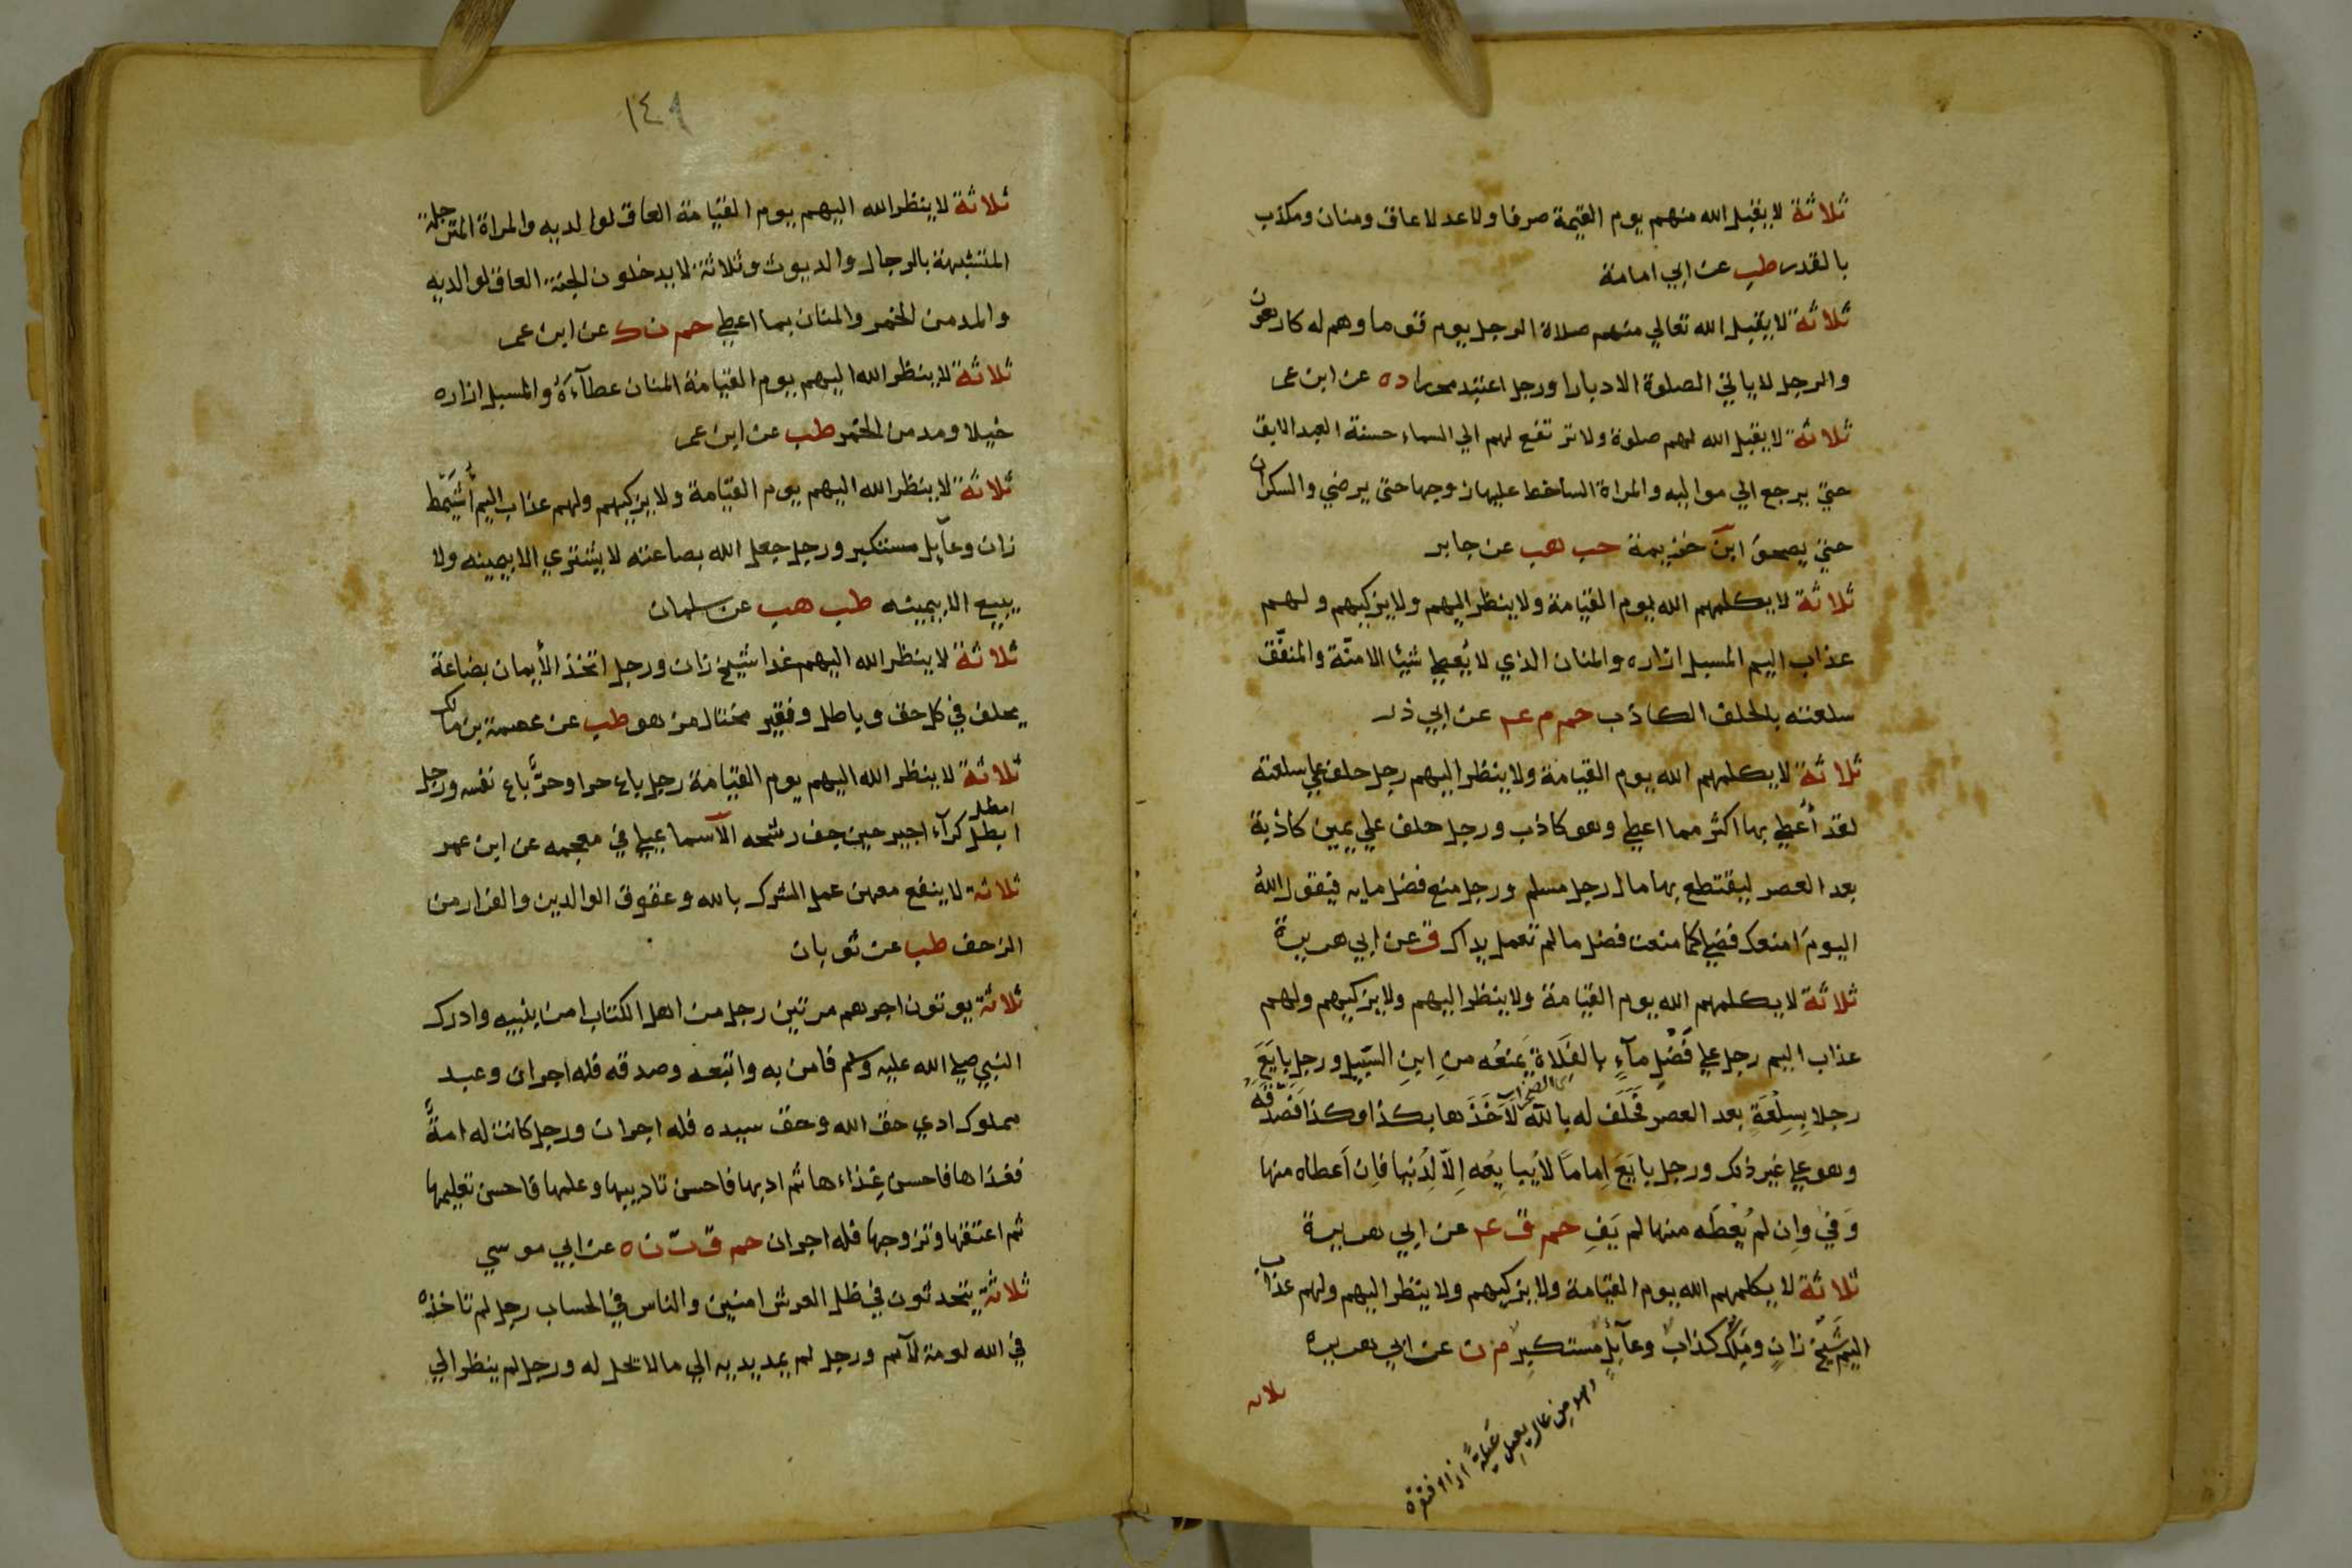 ثلاثة لا يقبل الله منهم يوم القيمة صرفا ولا عدلا عاق ومنان ومكذب
بالقدر طب عن ابي امامة
ثلاثة لا يقبل الله تعالي منهم صلاة الرجل يوم قوما وهم له كارهون
والرجل لا ياتي الصلوة الا دبارا ورجل اعتبد محررا د ه عن ابن عمر
ثلاثة لا يقبل الله لهم صلوة ولا ترتفع لهم الي السماء حسنة العبد الابق
حتي يرجع الي مواليه والمراة الساخط عليها زوجها حتي يرضي والسكران
حتي يصحو ابن خزيمة حب هب عن جابر
ثلاثة لا يكلمهم الله يوم القيامة ولا ينظر اليهم ولا يزكيهم ولهم
عذاب اليم المسبل ازاره والمنان الذي لا يُعطي شيئا الا منّة والمنفّق
سلعته بالحلف الكاذب حم م عم عن ابي ذر
ثلاثة لا يكلمهم الله يوم القيامة ولا ينظر اليهم رجل حلف علي سلعته
لقد أُعطي بها اكثر مما اعطي وهو كاذب ورجل حلف علي يمين كاذبة
بعد العصر ليقتطع بها مال رجل مسلم ورجل منع فضل مايه فيقول اللهُ
اليومَ امنعك فضلي كما منعت فضل ما لم تعمل يداك ق عن ابي هريرة
ثلاثة لا يكلمهم الله يوم القيامة ولا ينظر اليهم ولا يزكيهم ولهم
عذاب اليم رجل علي فَضْلِ مآءٍ بالفَلاةِ يَمنعُه منِ ابنِ السَّبيلِ ورجل بايَعَ
الصحرا
رجلا بِسِلْعَةٍ بعد العصر فَحَلَفَ له بالله لَأَخَذَها بكذا وكذا فَصَدَّقَهُ
وهو علي غير ذلك ورجل بايَعَ اِمامًا لا يُبايِعُه اِلّا لِدُنيا فاِن اَعطاه منها
وَفي واِن لم يُعْطَه منها لم يَفِ حم ق عم عن ابي هريرة
ثلاثة لا يكلمهم الله يوم القيامة ولا يزكيهم ولا ينظر اليهم ولهم عذاب
اليم شَيْخٌ زانٍ ومَلِكٌ كذابٌ وعآيلٌ مستكبِرٌ م ن عن ابي هريرة
من عال يعيل عَيلةً اذا افتقر
ثلاثة
١٤٩
ثلاثة لا ينظر الله اليهم يوم القيامة العاق لوالديه والمراة المترجلة
المتشبهة بالرجال والديوث وثلاثة لا يدخلون الجنة العاق لوالديه
والمدمن الخمر والمنان بما اعطي حم ن ك عن ابن عمر
ثلاثة لا ينظر الله اليهم يوم القيامة المنان عطآءَهُ والمسبل ازاره
خيلا ومدمن الخمر طب عن ابن عمر
ثلاثة لا ينظر الله اليهم يوم القيامة ولا يزكيهم ولهم عذاب اليم أُشَيْمِط
زان وعآيل مستكبر ورجل جعل الله بضاعته لا يشتري الا بيمينه ولا
يبيع الا بيمينه طب هب عن سلمان
ثلاثة لا ينظر الله اليهم غدا شيخ زان ورجل اتخذ الأيمان بضاعة
يحلف في كل حق وباطل وفقير مختال مزهو طب عن عصمة بن مالك
ثلاثة لا ينظر الله اليهم يوم القيامة رجل باع حرا وحرٌّ باع نفسه ورجل
امطل
ابطل كرآء اجير حين جف رشحه الاسماعيلي في معجمه عن ابن عمر
ثلاثة لا ينفع معهن عمل الشرك بالله وعقوق الوالدين والفرار من
الزحف طب عن ثوبان
ثلاثة يوتون اجرهم مرتين رجل من اهل الكتاب امن بنبيه وادرك
النبي صلي الله عليه وسلم فامن به واتبعه وصدقه فله اجران وعبد
مملوك ادي حق الله وحق سيده فله اجران ورجل كانت له امةٌ
فغذاها فاحسن غِذاءها ثم ادبها فاحسن تاديبها وعلمها فاحسن تعليمها
ثم اعتقها وتزوجها فله اجران حم ق ت ن ه عن ابي موسي
ثلاثة يتحدثون في ظل العرش امنين والناس في الحساب رجل لم تاخذه
في الله لومة لآئم ورجل لم يمد يديه الي ما لا يحل له ورجل لم ينظر الي